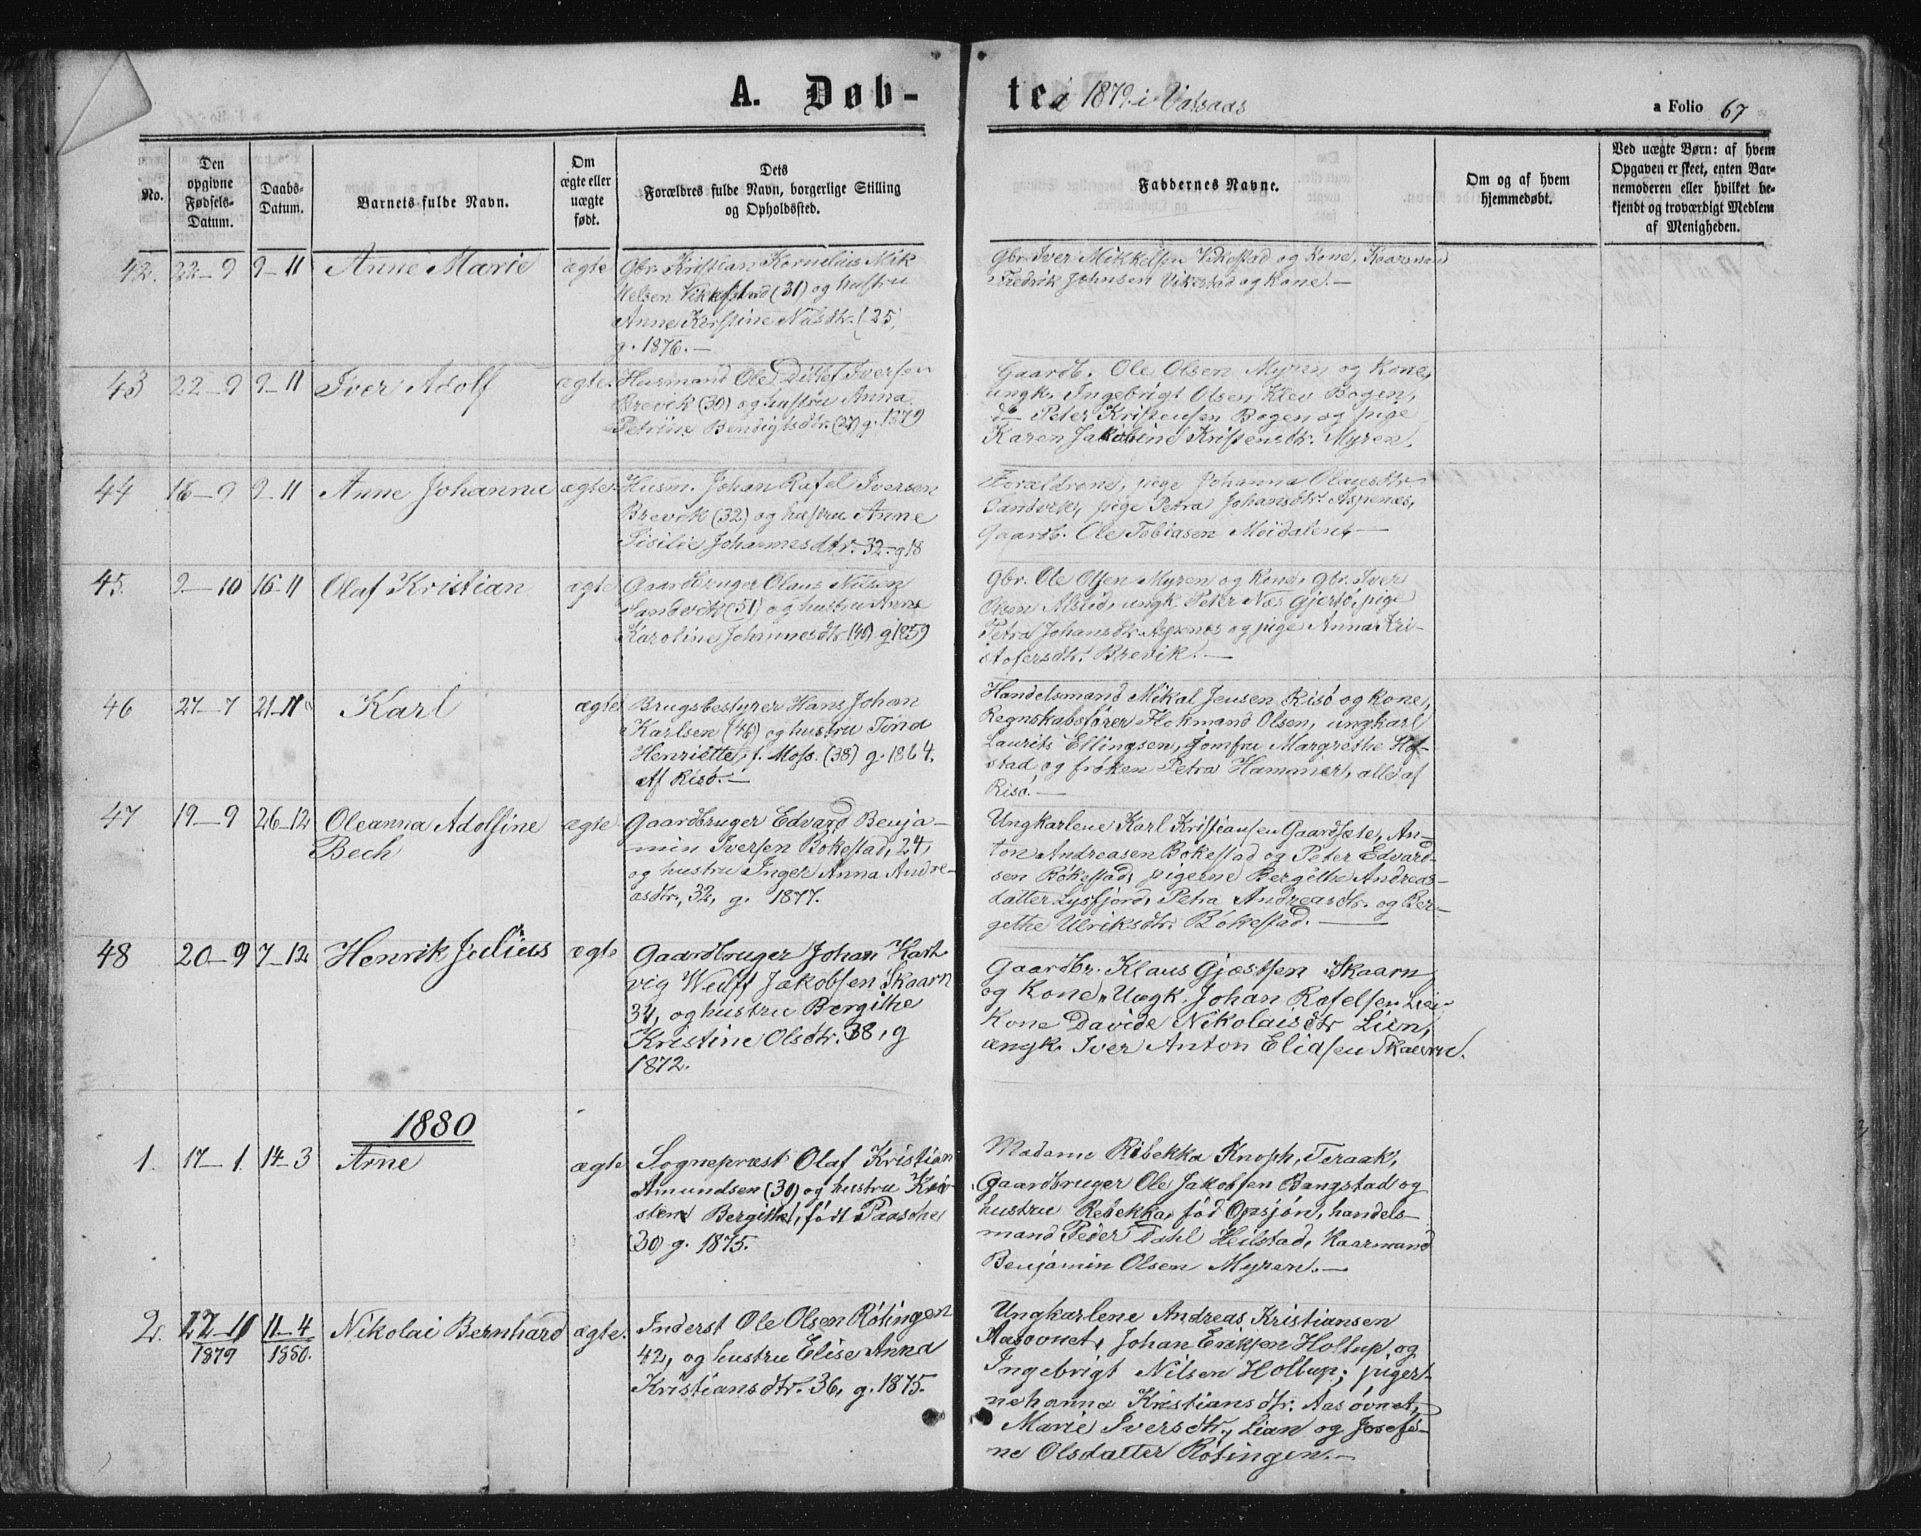 A. Døb-
te i 1879 i Valsaas
a Folio 67
No.
Den
opgivne
Fødsels-
Datum.
Daabs-
Datum.
Barnets fulde Navn.
Om
ægte eller
uægte
født.
Dets
Forældres fulde Navn, borgerlige Stilling
og Opholdssted.
Faddernes Navne.
Om og af hvem
hjemmedøbt.
Ved uægte Børn: af hvem
Opgaven er skeet, enten Bar-
nemoderen eller hvilket be-
kjendt og troværdigt Medlem
af Menigheden.
42. 22–9 9–11 Anne Marie ægte
Gbr. Kristian Kornelius Mik
kelsen Vikkestad (31) og hustru
Anne Kirstine Nilsdtr. (25)
g. 1876.–
Gbr. Iver Mikkelsen Vikestad og Kone, Kaarmand
Fredrik Johnsen Vikestad og Kone.–
43 22–9 9–11 Iver Adolf ægte.
Husmand Ole Ditlef Iversen
Brevik (30) og hustru Anna
Petrine Bendigtsdtr. (27) g. 1879
Gaardb. Ole Olsen Myren og Kone,
ungk. Ingebrigt Olsen Klev Bogen,
do Peter Kristensen Bogen og pige
Karen Jakobine Kristensdtr. Myren.
44 18–9 9–11 Anne Johanna ægte.
Husm. Johan Rafel Iversen
Brevik (32) og hustru Anne
Sisilie Johannesdtr. 32. g 18
Forældrene, pige Johanna Olausdtr
Sandvik, pige Petra Johansdtr. Aspenes,
Gaardb. Ole Tobiasen Meidalen.–
45. 9–10 16–11 Olaf Kristian ægte
Gaardbruger Olaus Nilsen
Sandvik (51) og hustru Anne
Karoline Johannesdtr (49) g 1859
Gbr. Ole Olsen Myren og Kone, gbr. Iver
Olsen Alstad, ungk Peter Næs Gjertø, pige
Petra Johansdtr. Aspenes og pige Anna Kri-
stofersdtr. Brevik.–
46 27–7 21–11 Karl ægte
Brugsbestyrer Hans Johan
Karlsen (46) og hustru Tona
Henriette, f. Moss. (38) g. 1864.
Af Risø.–
Handelsmand Mikal Jensen Risø og kone,
Regnskabsfører Flokmand Olsen, ungkarl
Laurits Ellingsen, Jomfru Margrethe Hof-
stad og frøken Petra Hammer, alle af
Risø.–
47 19–9 26–12 Oleanna Adolfine
Bech
ægte.
Gaardbruger Edvard Benja-
min Iversen Bøkestad, 24,
og hustru Inger Anna Andre-
asdtr., 32, g. 1877.
Ungkarlene Karl Kristiansen Gaardsæte, An-
ton Andreasen Bøkestad og Peter Edvard-
sen Bøkestad, pigerne Bergithe Andreas-
datter Lysfjord, Petra Andreasdtr. og Ber-
gethe Ulriksdtr. Bøkestad.–
48 20–9 7–12 Henrik Julius ægte
Gaardbruger Johan Hart
vig Wulff Jakobsen Skaarn
34, og hustru Bergithe
Kristine Olsdtr. 38, g
1872.
Gaardbr. Klaus Gjæstsen Skaarn
og Kone, Ungk. Johan Rafelsen Lien
Kone Davide Nikolaisdtr Lien,
ungk. Iver Anton Elidsen Skaarn.
1880
1. 17–1. 14–3 Arne ægte
Sognepræst Olaf Kristian
Amundsen (30) og hustru Kri-
stene Bergithe, født Paasche
(30) g. 1875.
Madame Ribekka Knoph, Teraak,
Gaardbruger Ole Jakobsen Bangstad og
hustru Rebekka, fød Opsjøn, handels-
mand Peder Dahl Heilstad, Kaarmand
Benjamin Olsen Myren.–
2. 22–11 11–4 Nikolai Bernhard ægte.
1879 1880.
Inderst Ole Olsen Røtingen
42, og hustru Elise Anna
Kristiansdtr. 36, g. 1875.
Ungkarlene Andreas Kristiansen
Aasovnet, Johan Eriksen Holtup, og
Ingebrigt Nilsen Holtup; piger-
ne hanna Kristiansdtr. Aasovnet,
Marie Iversdtr., Lian og Josefi-
ne Olsdatter Røtingen.–